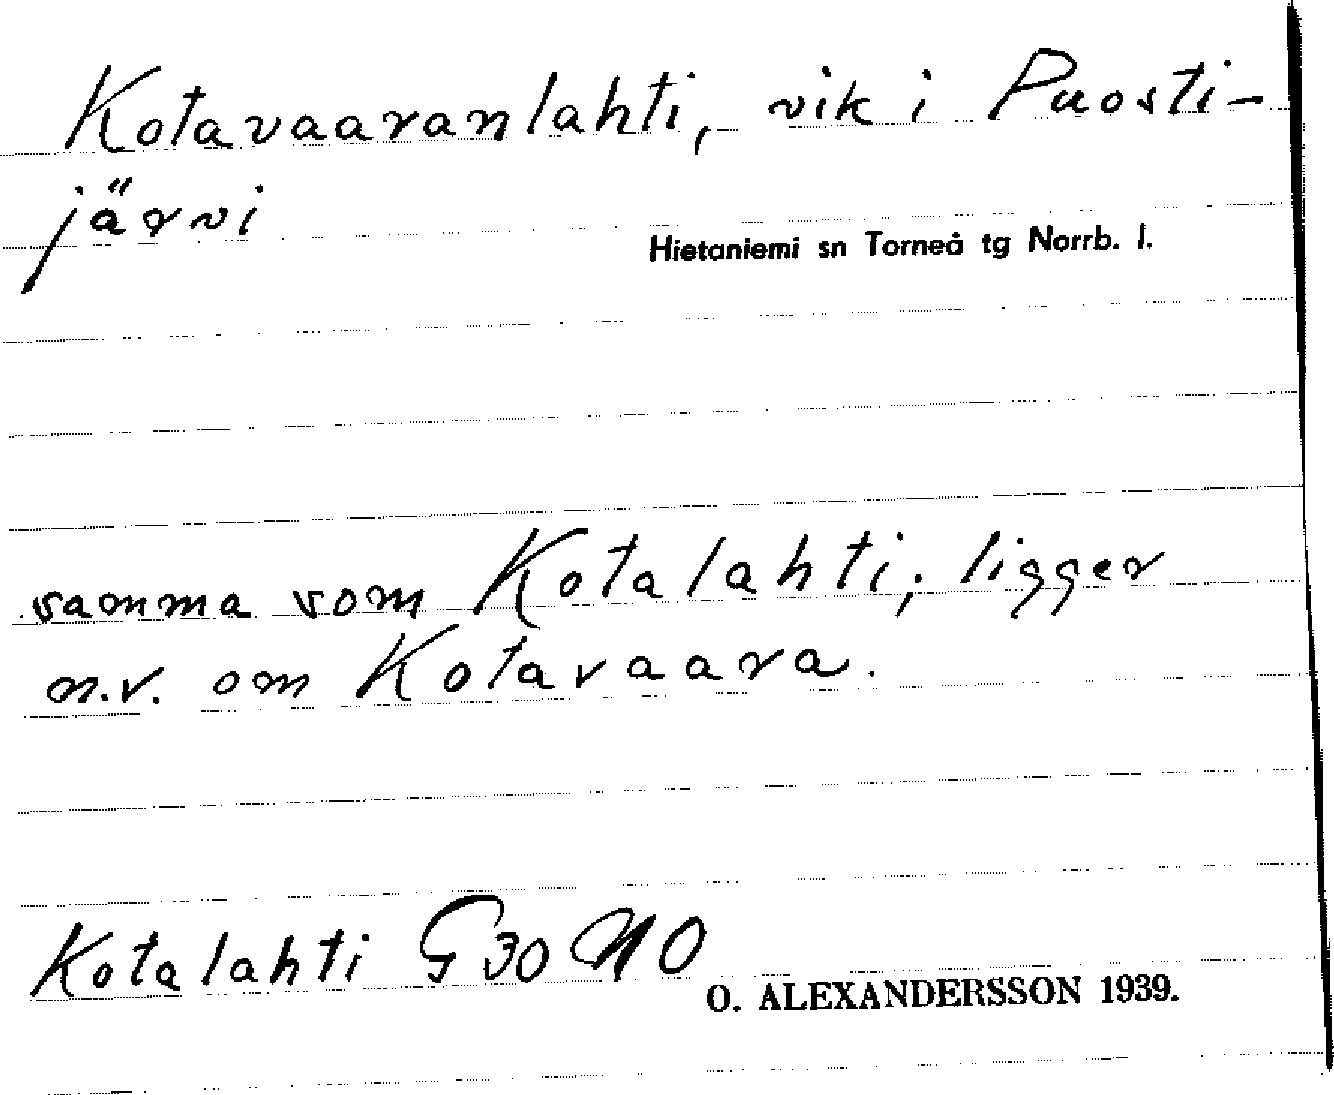 Kotavaaranlahti, vik i Puosti-
järvi
Hietaniemi sn Torneå tg Norrb. l.
samma som Kotalahti; ligger
n.v. om Kotavaara.
Kotalahti G 30 NO
O. ALEXANDERSSON 1939.